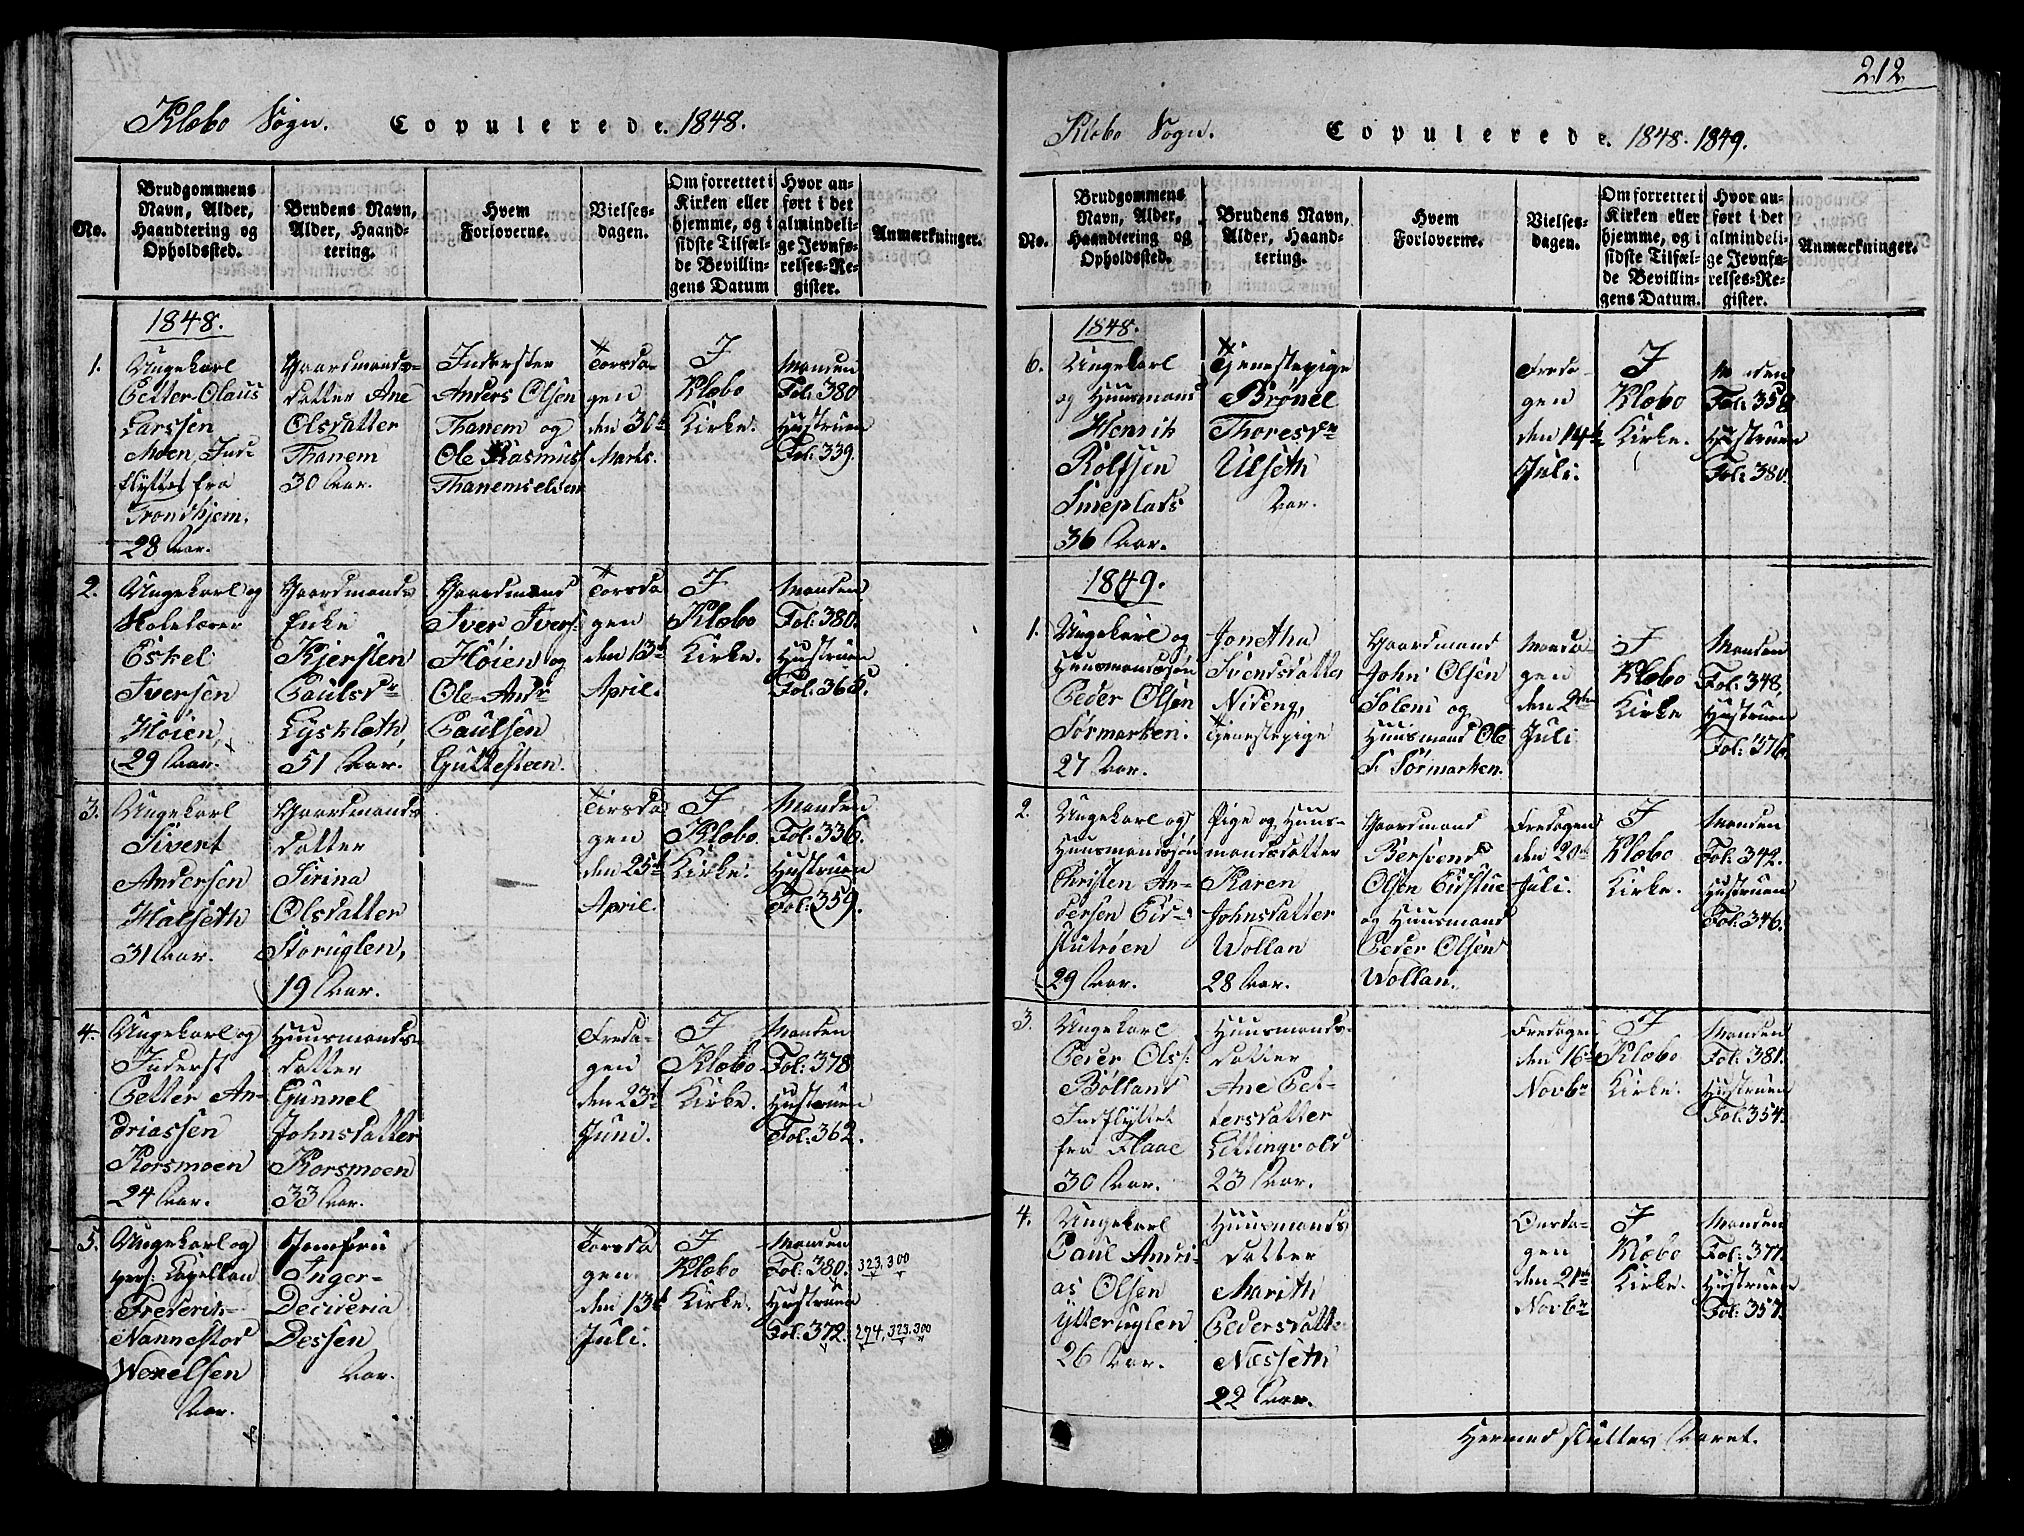 Klæbo Sogn. Copulerede. 1848.
No.
Brudgommens Navn, Alder, Haandtering og Opholdssted.
Brudens Navn, Alder, Haandtering.
Hvem Forloverne.
Vielsesdagen.
Om forrettet i Kirken eller hjemme, og i sidste Tilfælde Bevillingens Datum
Hvor anført i det almindelige Jevnførelses-Register.
Anmærkninger.
1848.
1.
Ungekarl
Petter Olaus
Larssen
Moen, Ind-
flyttet fra
Trondhjem.
28 Aar.
Gaardmands-
datter Ane
Olsdatter
Thanem
30 Aar.
Inderster
Anders Olsen
Thanem og
Ole Rasmus
Thanemselven
Torsda-
gen
den 30te
Marts.
I
Klæbo
Kirke.
Manden
Fol: 380
Hustruen
Fol: 339.
2.
Ungekarl og
Skolelærer
Eskel
Iversen
Høien,
29 Aar.
Gaardmands
Enke
Kjersten
Paulsdr
Lysklæth,
51 Aar.
Gaardmand
Iver Ivers:
Høien og
Ole Andr
Paulsen
Guttesteen.
Torsda
gen
den 13de
April.
I
Klæbo
Kirke.
Manden
Fol: 380.
Hustruen
Fol: 368.
3.
Ungekarl
Sivert
Andersen
Halseth
31 Aar.
Gaardmands
datter
Sirina
Olsdatter
Storuglen,
19 Aar.
Tirsda
gen
den 25de
April.
I
Klæbo.
Kirke:
Manden
Fol: 336.
Hustruen
Fol: 359.
4.
Ungekarl og
Inderst
Petter An-
driassen
Korsmoen
24 Aar.
Huusmands-
datter
Gunnel
Johnsdatter
Korsmoen
33 Aar.
Freda-
gen
den 23de
Juni.
I
Klæbo
Kirke.
Manden
Fol: 378
Hustruen
Fol: 362.
5.
Ungekarl og
pers: Capellan
Frederik
Nannestad
Wexelsen
Aar.
Jomfru
Inger
Decideria
Dessen
Aar.
Torsda
gen
den 13de
Juli.
I
Klæbo
Kirke.
Manden
Fol: 380.
Hustruen
Fol: 372.
323, 300
274, 323, 300
212
Klæbo Sogn. Copulerede. 1848. 1849.
No.
Brudgommens Navn, Alder, Haandtering og Opholdssted.
Brudens Navn, Alder, Haandtering.
Hvem Forloverne.
Vielsesdagen.
Om forrettet i Kirken eller hjemme, og i sidste Tilfælde Bevillingens Datum.
Hvor anført i det almindelige Jevnførelses-Register.
Anmærkninger.
1848.
6.
Ungekarl
og Huusmand
Henrik
Rolfsen
Smeplads
36 Aar.
Tjenestepige
Brønel
Thoresdr
Ulseth
Aar.
Freda-
gen
den 14de
Juli.
I
Klæbo
Kirke.
Manden
Fol: 358
Hustruen
Fol: 380.
1849.
1.
Ungekarl og
Huusmandssøn
Peder Olsen
Sørmarken.
27 Aar.
Jonetha
Svendsdatter
Nideng,
Tjenestepige
Gaardmand
John Olsen
Solem og
Huusmand Ole
Sørmarken.
Manda-
gen
den 9de
Juli
I
Klæbo
Kirke
Manden
Fol: 348,
Hustruen
Fol: 376.
2.
Ungekarl og
Huusmandssøn
Christen An-
dersen Eid-
stutrøen
29 Aar.
Pige og Huus-
mandsdatter
Karen
Johnsdatter
Wollan
28 Aar.
Gaardmand
Bersvend
Olsen Eidstue
og Huusmand
Peder Olsen
Wollan.
Fredagen
den 20de
Juli.
I
Klæbo
Kirke.
Manden
Fol: 342.
Hustruen
Fol: 346.
3.
Ungekarl
Peder Ols:
Bølland
Indflyttet
fra Flaae
30 Aar.
Huusmands-
datter
Ane Pet-
tersdatter
Lettingvold
23 Aar.
Fredagen
den 16de
Novbr
I
Klæbo
Kirke.
Manden
Fol: 381.
Hustruen
Fol: 354.
4.
Ungekarl
Paul Andri-
as Olsen
Ytteruglen
26 Aar.
Huusmands
datter
Marith
Pedersdatter
Næsseth
22 Aar.
Onsda-
gen
den 21de
Novbr
I
Klæbo
Kirke.
Manden
Fol: 377.
Hustruen
Fol: 357.
Hermed sluttes Aaret.